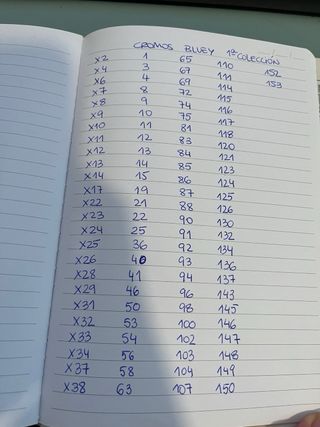 CROMOS BLUEY 1ª COLECCIÓN
X2 1 65 110 152
X4 3 67 111 153
X6 4 69 114
X7 8 72 115
X8 9 74 116
X9 10 75 117
X10 11 81 118
X11 12 83 120
X12 13 84 121
X13 14 85 123
X14 15 86 124
X17 19 87 125
X22 21 88 126
X23 22 90 130
X24 25 91 132
X25 36 92 134
X26 40 93 136
X28 41 94 137
X29 46 96 143
X31 50 98 145
X32 53 100 146
X33 54 102 147
X34 56 103 148
X37 58 104 149
X38 63 107 150